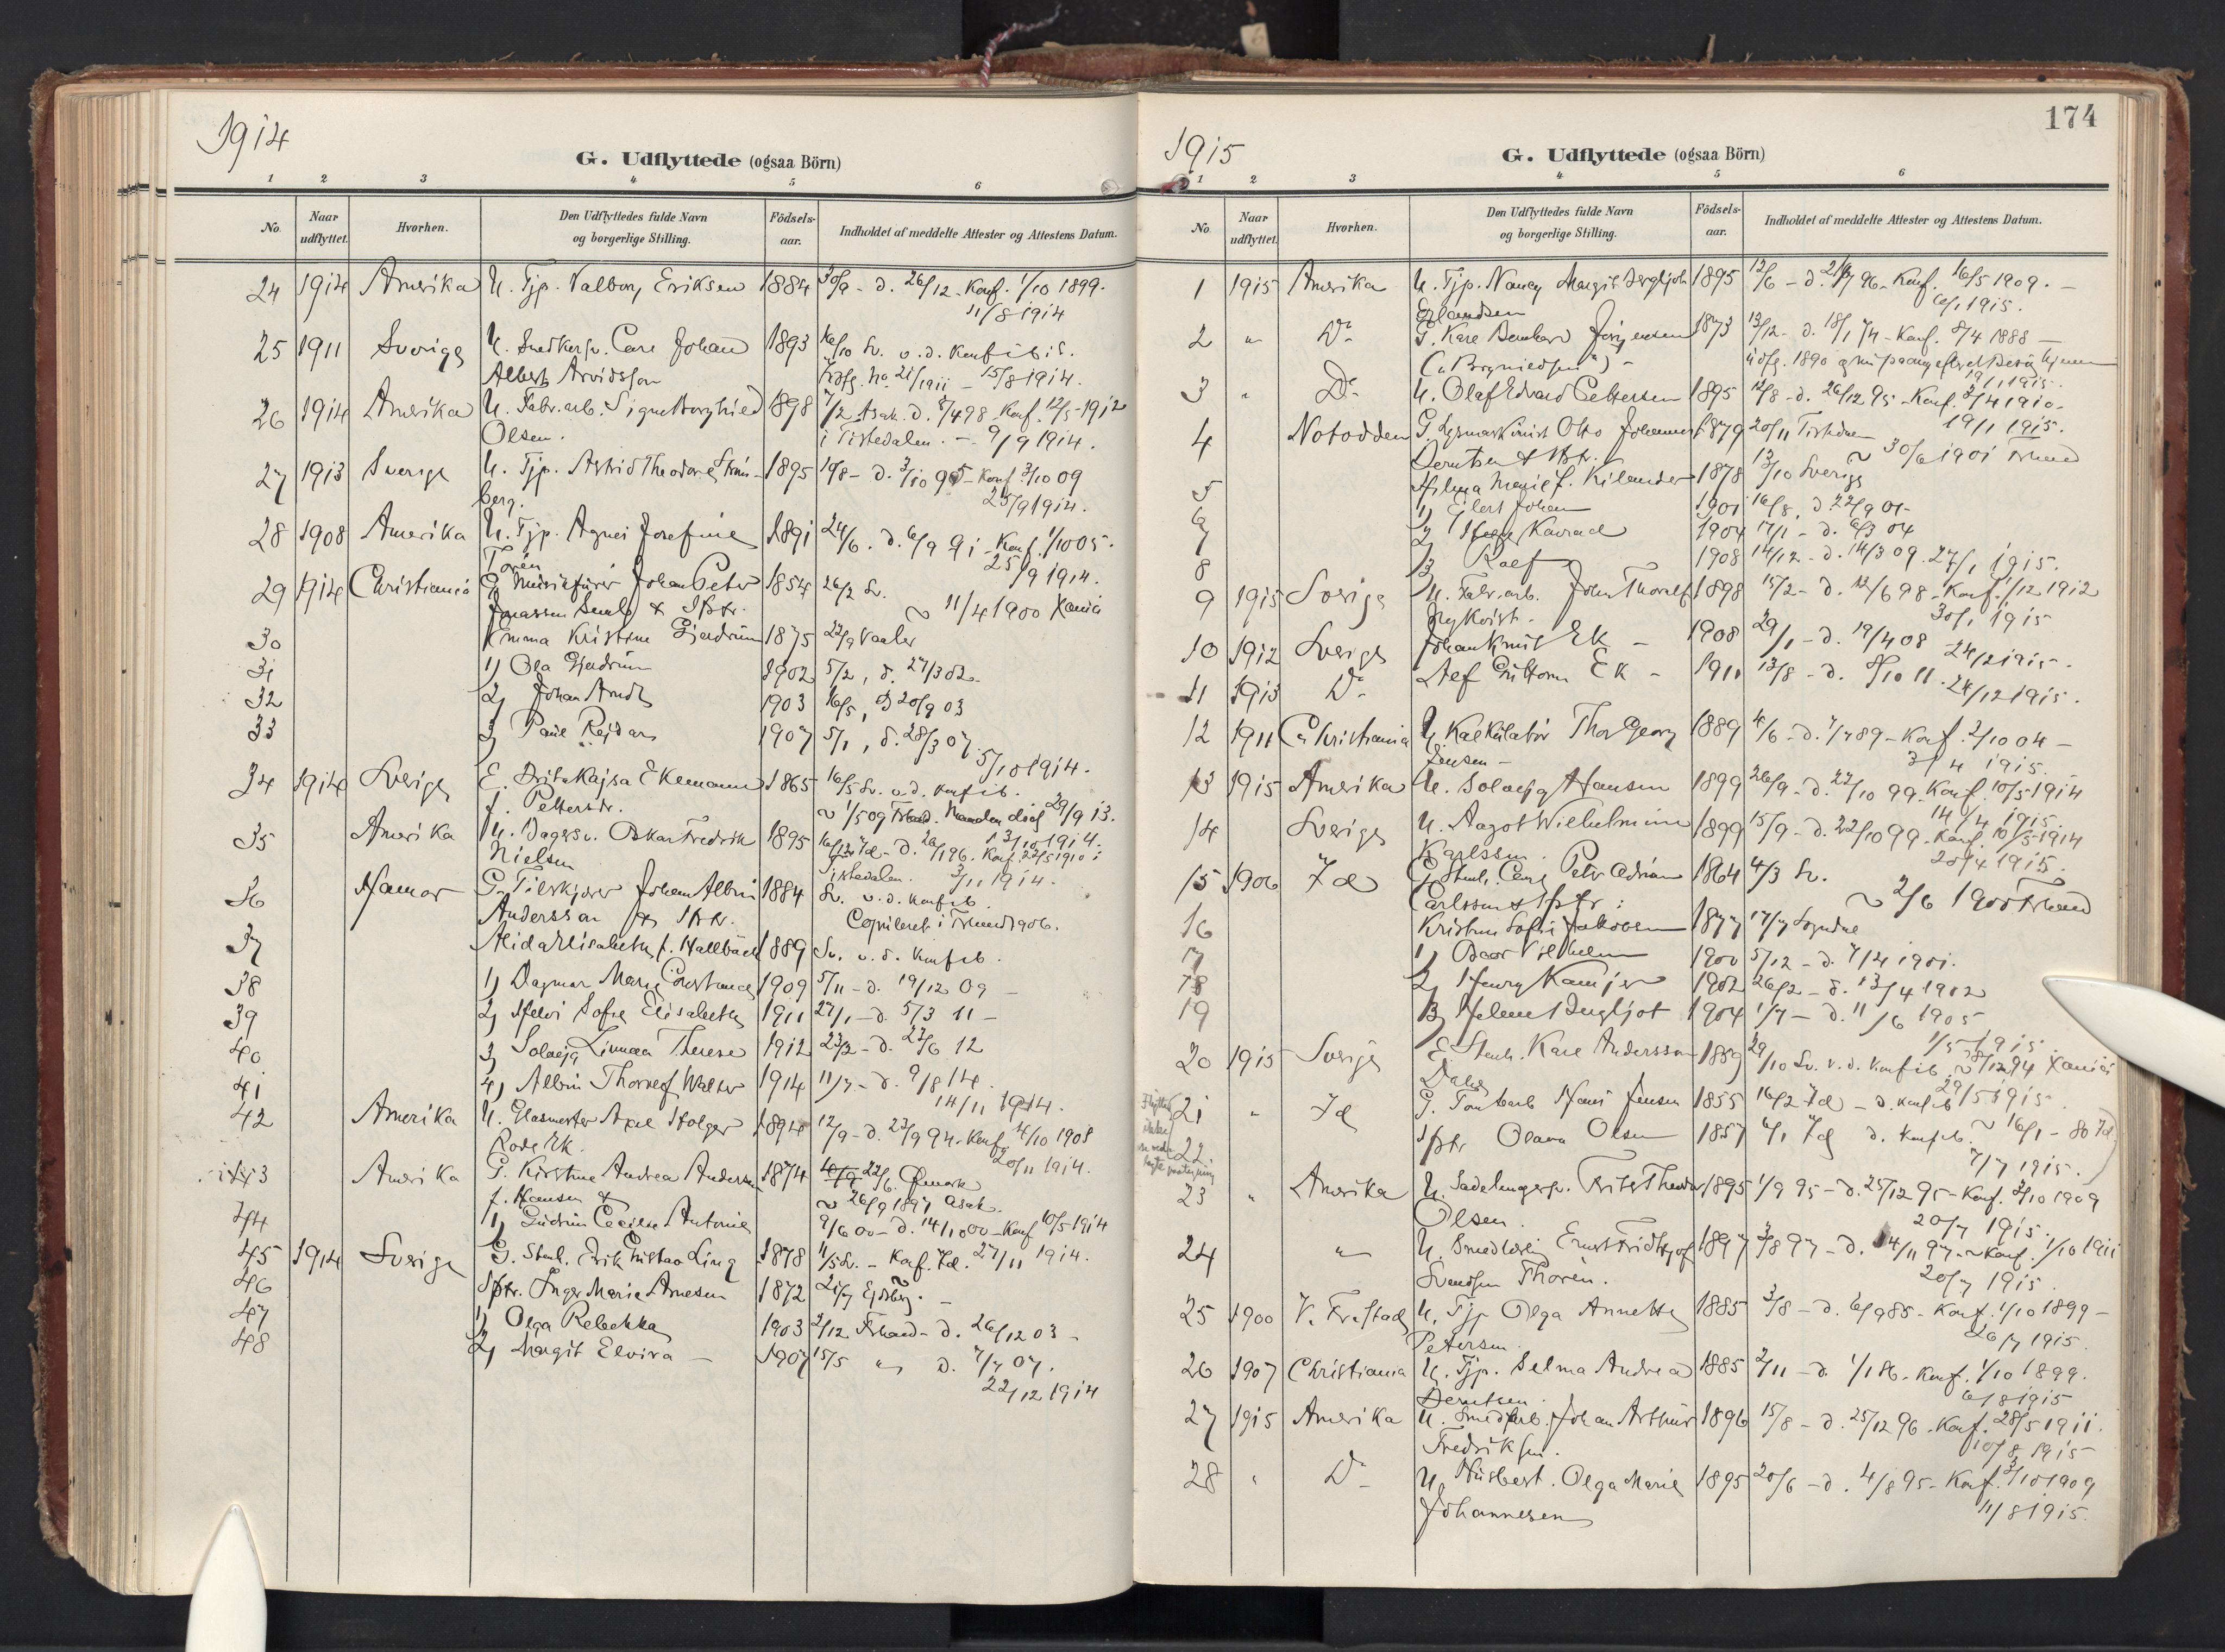 1914
G. Udflyttede (ogsaa Börn)
1 2 3 4 5 6
No. Naar udflyttet. Hvorhen. Den Udflyttedes fulde Navn og borgerlige Stilling. Födsels-aar. Indholdet af meddelte Attester og Attestens Datum.
24 1914 Amerika U. Tjp. Valborg Eriksen 1884 30/9 - d. 26/12 - Konf. 1/10 1899.
11/8 1914
25 1911 Sverige U. Snedkersv. Carl Johan 1893 16/10 Sv. v. d. Konf ib. id.
Albert Arvidsson Udfg. No. 21/1911 - 15/8 1914.
26 1914 Amerika U. Fabr.arb. Signe Borghild 1898 7/2 Asak d. 8/4 98 Konf. 12/5 1912
Olsen. i Tistedalen. - 9/9 1914.
27 1913 Sverige U. Tjp. Astrid Theodore Ström- 1895 19/8 - d. 3/10 95 - Konf. 3/10 09
berg. 25/9 1914.
28 1908 Amerika U. Tjp. Agnes Josefine 1891 24/6. d. 6/9 91 - Konf. 1/10 05.
Torén 25/9 1914.
29 1914 Christiania G. Murer Johan Peter 1854 26/2 Sv.
Jonassen & Hstr. 11/4 1900 Xania
30 Emma Kristine Gjerdrum 1875 22/9 Vaaler
31 1) Ola Gjerdrum 1902 5/2, d. 27/3 02.
32 2) Johan Arndt 1903 16/5, d. 20/9 03
33 3) Paul Reidar 1907 5/1, d. 28/3 07. 5/10 1914.
34 1914 Sverige E. Brita Kajsa Ekemann 1865 16/5 Sv. v. d. Konf ib.
f. Pettersdr. 1/5 09 29/9 13.
13/10 1914.
35 Amerika U. Bagersv. Oskar Fredrik 1895 16/12 Id - d. 26/1 96. Konf. 22/5 1910 i
Nielsen Tistedalen. 3/11 1914.
36 Hamar G. Tilskjærer Johan Albin 1884 Sv. v. d. Konf ib.
Andersson & Hstr. Copuleret i Frhald 1906.
37 Alida Elisabeth f. Hallbäck 1889 Sv. v. d. Konf ib.
38 1) Dagmar Marie Constance 1909 5/11 - d. 19/12 09 -
39 2) Helvi Sofie Elisabeth 1911 27/1 - d. 5/3 11 -
40 3) Solveig Linnea Therese 1912 23/2 - d. 23/6 12
41 4) Albin Thorleif Walter 1914 11/7 - d. 9/8 14.
14/11 1914.
42 Amerika U. Glasmester Axel Holger 1894 12/9 - d. 23/9 94 - Konf. 4/10 1908
Rode Ek. 20/11 1914.
43 Amerika G. Kirstine Andrea Andersen 1874 22/6. Dmark
f. Hansen & 26/9 1897 Asak.
44 1) Gudrun Cecilie Antonie 9/6 00 - d. 14/10 00 - Konf 10/5 1914
45 1914 Sverige G. Stenh. Erik Gustav Ling 1878 11/5 Sv. - Konf. Id. 27/11 1914.
46 Hstr. Inger Marie Arnesen 1872 21/7 Eidsberg. -
47 1) Olga Rebekka 1903 2/12 Frhald - d. 26/12 03 -
48 2) Margit Elvira - 1907 15/5 " d. 7/7 07.
22/12 1914
174
1915
G. Udflyttede (ogsaa Börn)
1 2 3 4 5 6
No. Naar udflyttet. Hvorhen. Den Udflyttedes fulde Navn og borgerlige Stilling. Födsels-aar. Indholdet af meddelte Attester og Attestens Datum.
1 1915 Amerika U. Tjp. Nancy Margit Bergljot 1895 12/6 - d. 96 - Konf. 16/5 1909. -
Erlandsen 1915.
2 " Do G. Karl Bernhard Jörgensen 1873 13/12 - d. 18/1 74 - Konf. 8/4 1888 -
19/1 1915.
3 " Do U. Olaf Edvard Pettersen 1895 12/8 - d. 26/12 95 - Konf. 3/4 1910.
19/1 1915.
4 Notodden G. Otto Johannes 1879 20/11 Tistedalen
Berntsen & Hstr. 30/6 1901 Frhald
5 Hilma Marie f. Kilander 1878 13/10 Sverige
6 1) Eilert Johan 1901 16/8, d 22/9 01 -
7 2) Konrad 1904 17/1 - d. 6/3 04
8 3) Rolf 1908 14/12 - d. 14/3 09. 27/1 1915.
9 1915 Sverige U. Fabr.arb. John Thoralf 1898 15/2 - d. 12/6 98 - Konf. 1/12 1912
Nykvist. 30/1 1915
10 1912 Sverige Johan Knut Ek - 1908 29/1 - d. 19/4 08 24/2 1915.
11 1913 Do Alf Guttorm Ek - 1911 13/8 - d. 8/10 11. 24/12 1915.
12 1911 Christiania U. Kalkulatör Thor Georg 1889 4/6 - d. 7/7 89 - Konf. 2/10 04 -
Jensen - 3/4 1915.
13 1915 Amerika U. Solveig Hansen 1899 26/9 - d. 22/10 99. Konf. 10/5 1914
14/4 1915.
14 Sverige U. Aagot Wilhelmine 1899 15/9 - d. 22/10 99. Konf. 10/5 1914
Karlsson. 20/4 1915.
15 1906 Id G. Stenh. Carl Peter Adrian 1864 4/3 Sv.
Carlsson & Hstr: 2/6 1900 Frhald
16 Kristine Sofie Jakobsen 1877 17/7 Sogndal
17 1) Vilhelm 1900 5/12 - d. 7/4 1901.
18 2) Henry 1902 26/2 - d. 13/4 1902
19 3) Helene Bergljot 1904 1/7 - d. 11/6 1905
1/5 1915
20 1915 Sverige E. Stenh. Karl Andersson 1859 29/10 Sv. v. d. Konf ib. 8/12 94 Xania
Dahl 29/5 1915.
Flyttede ikke
21 " Id G. Tomtearb Hans Jensen 1855 16/2 Id - d. Konf ib
22. Hstr Olava Olsen 1857 6/1 Id d. Konf ib. 16/1 - 80 Id.
7/7 1915.
23 " Amerika U. Sadelmagersv. Frits Theodor 1895 1/9 95 - d. 25/12 95 - Konf. 3/10 1909
Olsen. 20/7 1915.
24 " U. Smedlærling Ernst Fridtjof 1897 3/8 97 - d. 14/11 97 - Konf. 1/10 1911
Svendsen Thorén. 20/7 1915.
25 1900 V. Fr.stad U. Tjp Olga Annette 1885 3/8 - d. 6/9 85 - Konf. 1/10 1899 -
Petersen. 26/7 1915.
26 1907 Christiania U. Tjp. Selma Andrea 1885 2/11 - d. 1/1 86 - Konf. 1/10 1899.
Berntsen. 6/8 1915
27 1915 Amerika U. Smedarb. Johan Arthur 1896 15/8 - d. 25/12 96. Konf. 28/5 1911.
Fredriksen. 10/8 1915
28 " Do U. Husbest. Olga Marie 1895 20/6 - d. 4/8 95 - Konf. 3/10 1909
Johannesen 11/8 1915.